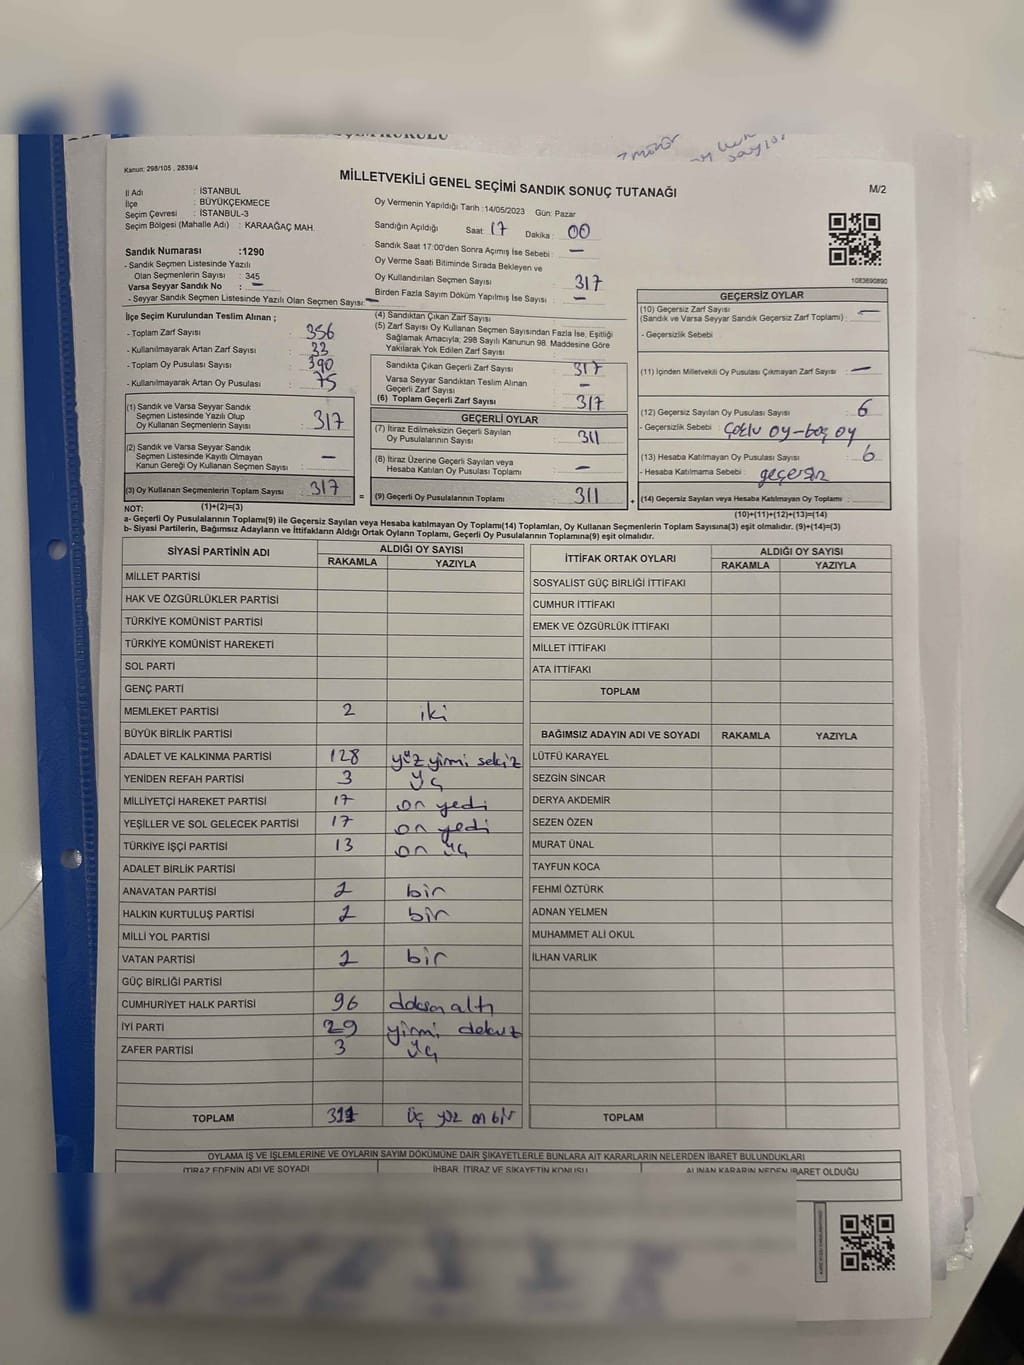 Kanun: 298/105 , 2839/4
MİLLETVEKİLİ GENEL SEÇİMİ SANDIK SONUÇ TUTANAĞI
M/2
İl Adı : İSTANBUL
İlçe : BÜYÜKÇEKMECE
Seçim Çevresi : İSTANBUL-3
Seçim Bölgesi (Mahalle Adı) : KARAAĞAÇ MAH.
Sandık Numarası :1290
- Sandık Seçmen Listesinde Yazılı
Olan Seçmenlerin Sayısı : 345
Varsa Seyyar Sandık No : —
- Seyyar Sandık Seçmen Listesinde Yazılı Olan Seçmen Sayısı: —
Oy Vermenin Yapıldığı Tarih :14/05/2023 Gün: Pazar
Sandığın Açıldığı Saat: 17 Dakika: 00
Sandık Saat 17:00'den Sonra Açımış İse Sebebi : —
Oy Verme Saati Bitiminde Sırada Bekleyen ve
Oy Kullandırılan Seçmen Sayısı : 317
Birden Fazla Sayım Döküm Yapılmış İse Sayısı : —
1083690890
İlçe Seçim Kurulundan Teslim Alınan ;
- Toplam Zarf Sayısı : 356
- Kullanılmayarak Artan Zarf Sayısı : 33
- Toplam Oy Pusulası Sayısı : 390
- Kullanılmayarak Artan Oy Pusulası : 75
(1) Sandık ve Varsa Seyyar Sandık
Seçmen Listesinde Yazılı Olup
Oy Kullanan Seçmenlerin Sayısı : 317
(2) Sandık ve Varsa Seyyar Sandık
Seçmen Listesinde Kayıtlı Olmayan
Kanun Gereği Oy Kullanan Seçmen Sayısı : —
(3) Oy Kullanan Seçmenlerin Toplam Sayısı : 317
(4) Sandıktan Çıkan Zarf Sayısı :
(5) Zarf Sayısı Oy Kullanan Seçmen Sayısından Fazla İse, Eşitliği
Sağlamak Amacıyla; 298 Sayılı Kanunun 98. Maddesine Göre
Yakılarak Yok Edilen Zarf Sayısı :
Sandıkta Çıkan Geçerli Zarf Sayısı : 317
Varsa Seyyar Sandıktan Teslim Alınan
Geçerli Zarf Sayısı : —
(6) Toplam Geçerli Zarf Sayısı : 317
GEÇERLİ OYLAR
(7) İtiraz Edilmeksizin Geçerli Sayılan
Oy Pusulalarının Sayısı : 311
(8) İtiraz Üzerine Geçerli Sayılan veya
Hesaba Katılan Oy Pusulası Toplamı : —
= (9) Geçerli Oy Pusulalarının Toplamı : 311 +
GEÇERSİZ OYLAR
(10) Geçersiz Zarf Sayısı
(Sandık ve Varsa Seyyar Sandık Geçersiz Zarf Toplamı) : —
- Geçersizlik Sebebi :
(11) İçinden Milletvekili Oy Pusulası Çıkmayan Zarf Sayısı : —
(12) Geçersiz Sayılan Oy Pusulası Sayısı : 6
- Geçersizlik Sebebi : Çoklu oy-boş oy
(13) Hesaba Katılmayan Oy Pusulası Sayısı : 6
- Hesaba Katılmama Sebebi : geçersiz
(14) Geçersiz Sayılan veya Hesaba Katılmayan Oy Toplamı :
NOT: (1)+(2)=(3)
(10)+(11)+(12)+(13)=(14)
a- Geçerli Oy Pusulalarının Toplamı(9) ile Geçersiz Sayılan veya Hesaba katılmayan Oy Toplamı(14) Toplamları, Oy Kullanan Seçmenlerin Toplam Sayısına(3) eşit olmalıdır. (9)+(14)=(3)
b- Siyasi Partilerin, Bağımsız Adayların ve İttifakların Aldığı Ortak Oyların Toplamı, Geçerli Oy Pusulalarının Toplamına(9) eşit olmalıdır.
SİYASİ PARTİNİN ADI ALDIĞI OY SAYISI
RAKAMLA YAZIYLA
MİLLET PARTİSİ
HAK VE ÖZGÜRLÜKLER PARTİSİ
TÜRKİYE KOMÜNİST PARTİSİ
TÜRKİYE KOMÜNİST HAREKETİ
SOL PARTİ
GENÇ PARTİ
MEMLEKET PARTİSİ 2 iki
BÜYÜK BİRLİK PARTİSİ
ADALET VE KALKINMA PARTİSİ 128 yüz yirmi sekiz
YENİDEN REFAH PARTİSİ 3 üç
MİLLİYETÇİ HAREKET PARTİSİ 17 on yedi
YEŞİLLER VE SOL GELECEK PARTİSİ 17 on yedi
TÜRKİYE İŞÇİ PARTİSİ 13 on üç
ADALET BİRLİK PARTİSİ
ANAVATAN PARTİSİ 1 bir
HALKIN KURTULUŞ PARTİSİ 1 bir
MİLLİ YOL PARTİSİ
VATAN PARTİSİ 1 bir
GÜÇ BİRLİĞİ PARTİSİ
CUMHURİYET HALK PARTİSİ 96 doksan altı
İYİ PARTİ 29 yirmi dokuz
ZAFER PARTİSİ 3 üç
TOPLAM 311 üç yüz on bir
İTTİFAK ORTAK OYLARI ALDIĞI OY SAYISI
RAKAMLA YAZIYLA
SOSYALİST GÜÇ BİRLİĞİ İTTİFAKI
CUMHUR İTTİFAKI
EMEK VE ÖZGÜRLÜK İTTİFAKI
MİLLET İTTİFAKI
ATA İTTİFAKI
TOPLAM
BAĞIMSIZ ADAYIN ADI VE SOYADI RAKAMLA YAZIYLA
LÜTFÜ KARAYEL
SEZGİN SİNCAR
DERYA AKDEMİR
SEZEN ÖZEN
MURAT ÜNAL
TAYFUN KOCA
FEHMİ ÖZTÜRK
ADNAN YELMEN
MUHAMMET ALİ OKUL
İLHAN VARLIK
TOPLAM
OYLAMA İŞ VE İŞLEMLERİNE VE OYLARIN SAYIM DÖKÜMÜNE DAİR ŞİKAYETLERLE BUNLARA AİT KARARLARIN NELERDEN İBARET BULUNDUKLARI
İTİRAZ EDENİN ADI VE SOYADI İHBAR, İTİRAZ VE ŞİKAYETİN KONUSU ALINAN KARARIN NEDEN İBARET OLDUĞU